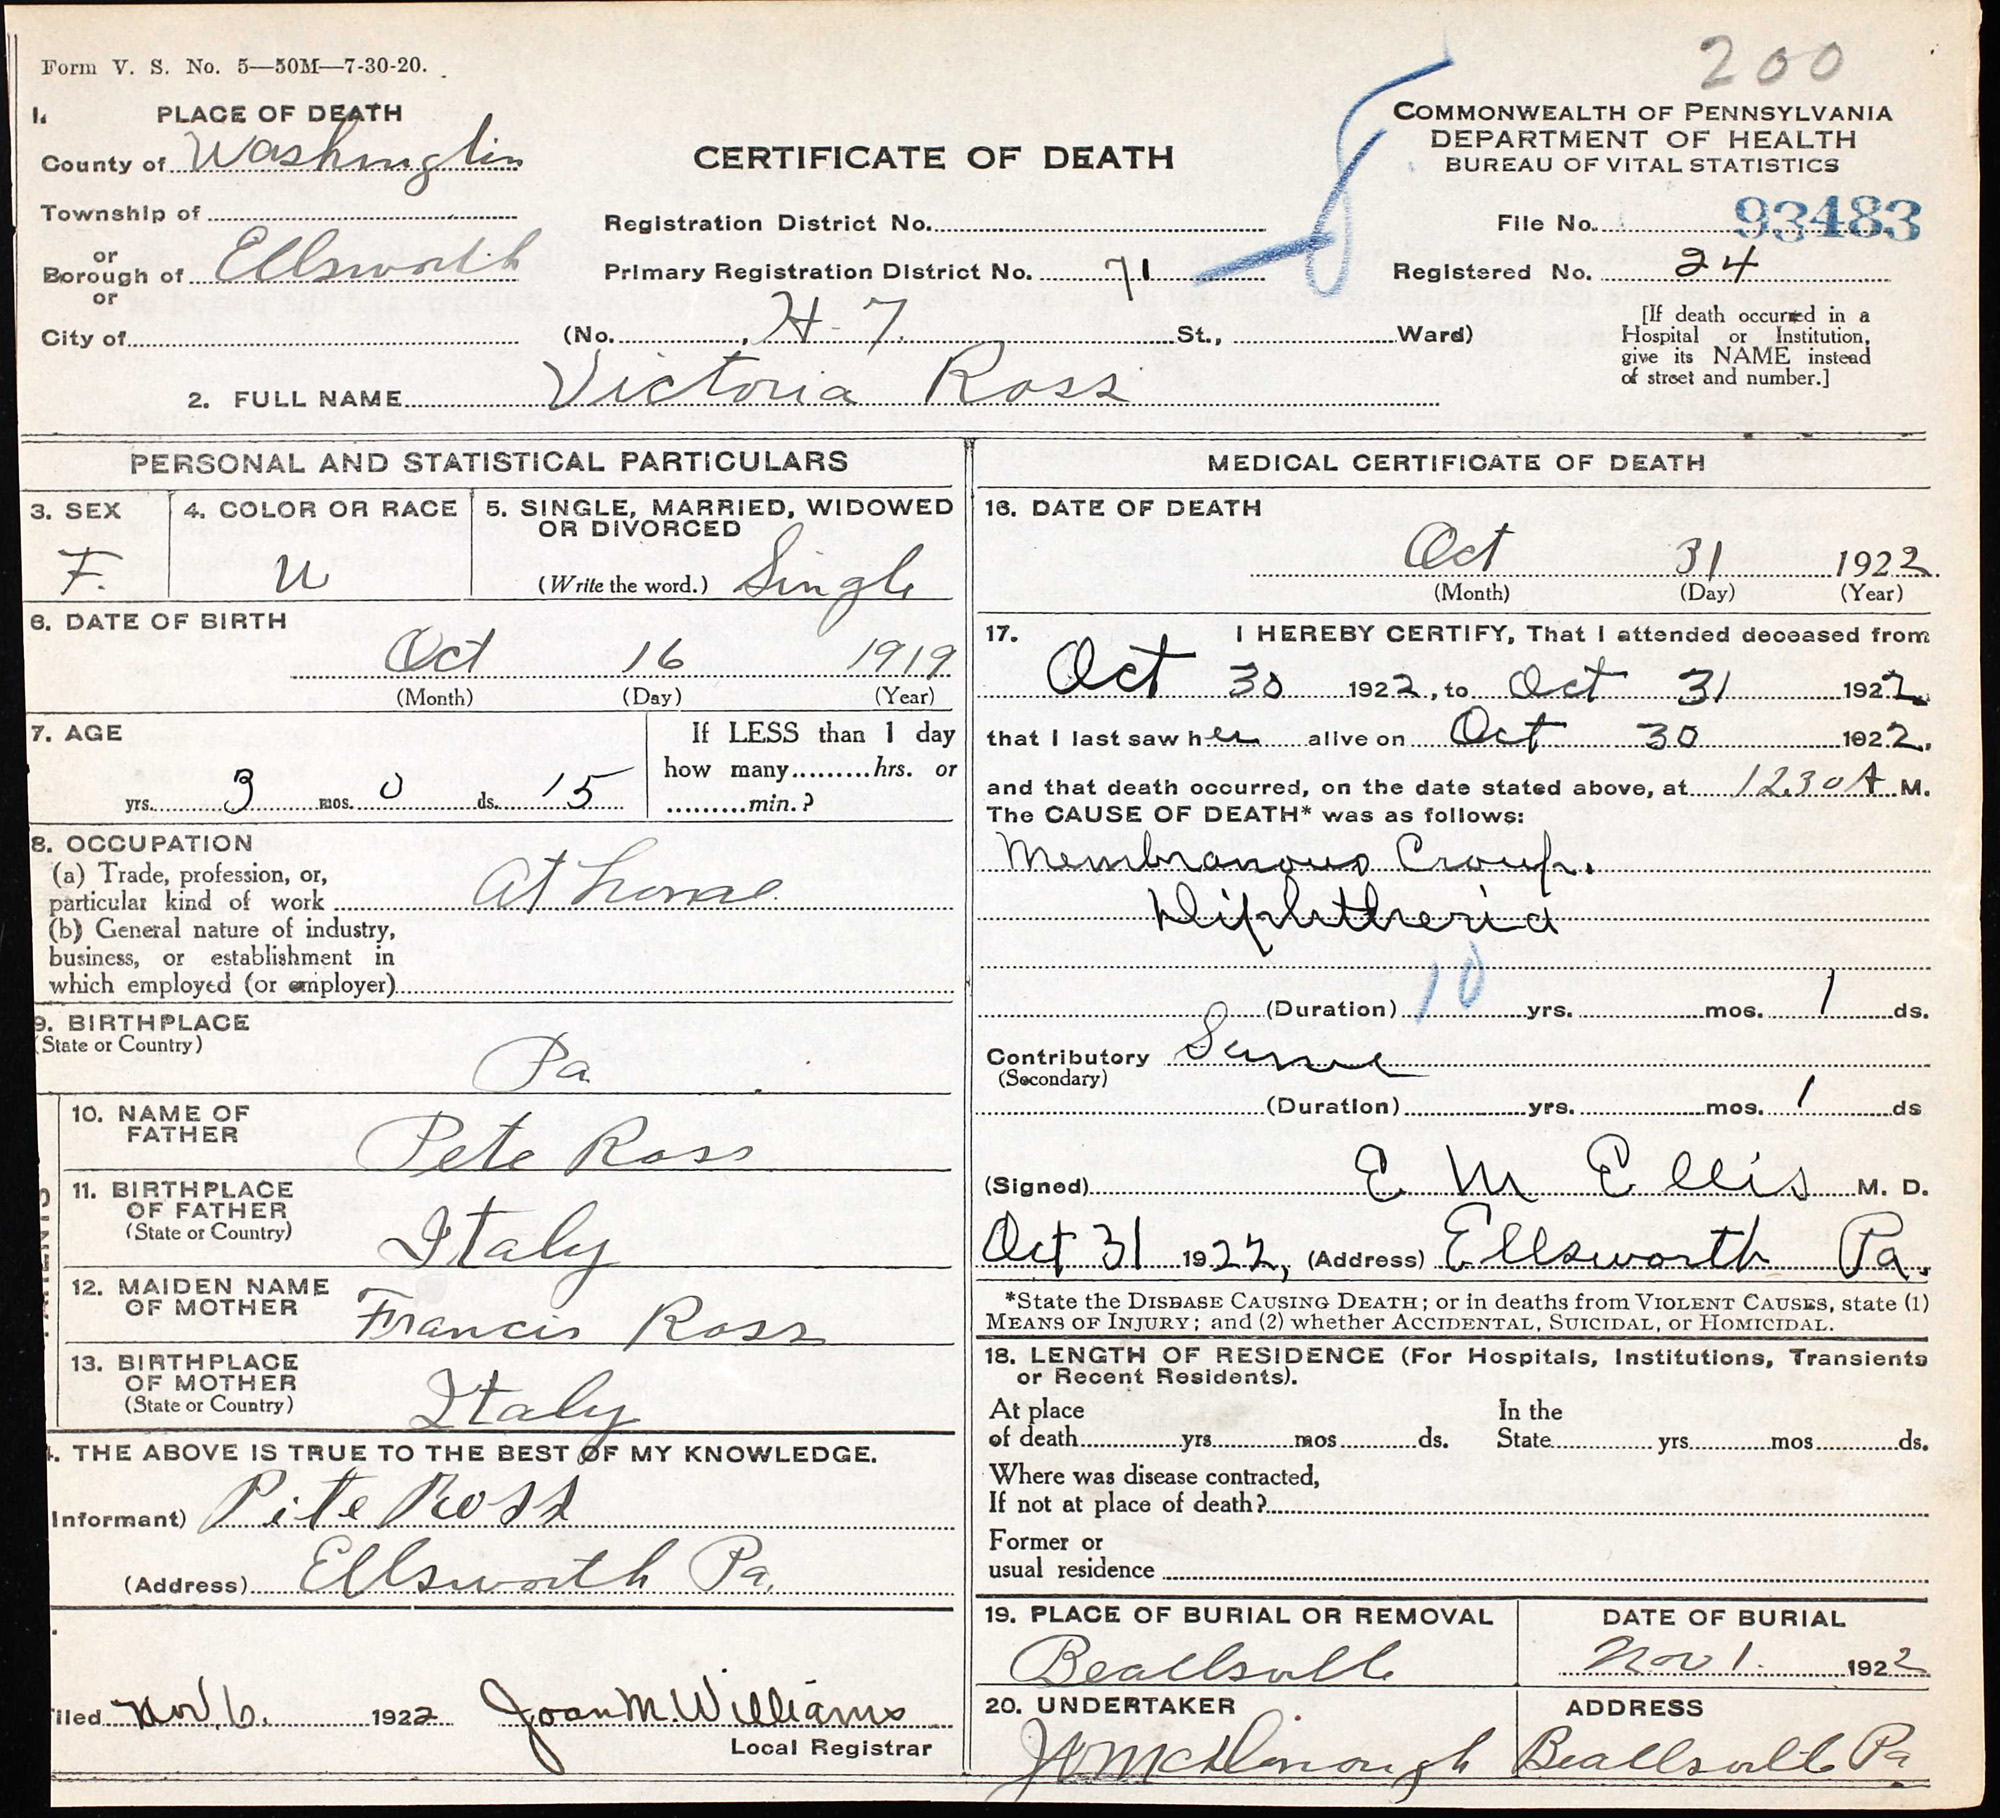 200
Form V. S. No. 5—50M—7-30-20.
1. PLACE OF DEATH
County of Washington
Township of
or
Borough of Ellsworth
or
City of
CERTIFICATE OF DEATH
Registration District No.
Primary Registration District No. 71
(No. , H-7. St., Ward)
COMMONWEALTH OF PENNSYLVANIA
DEPARTMENT OF HEALTH
BUREAU OF VITAL STATISTICS
File No. 93483
Registered No. 24
[If death occurred in a
Hospital or Institution,
give its NAME instead
of street and number.]
2. FULL NAME Victoria Ross
PERSONAL AND STATISTICAL PARTICULARS
3. SEX
F.
4. COLOR OR RACE
W
5. SINGLE, MARRIED, WIDOWED
OR DIVORCED
(Write the word.) Single
6. DATE OF BIRTH
Oct 16 1919
(Month) (Day) (Year)
7. AGE
yrs. 3 mos. 0 ds. 15
If LESS than 1 day
how many hrs. or
min.?
8. OCCUPATION
(a) Trade, profession, or,
particular kind of work At home
(b) General nature of industry,
business, or establishment in
which employed (or employer)
9. BIRTHPLACE
(State or Country)
Pa
PARENTS
10. NAME OF
FATHER
Pete Ross
11. BIRTHPLACE
OF FATHER
(State or Country)
Italy
12. MAIDEN NAME
OF MOTHER
Francis Ross
13. BIRTHPLACE
OF MOTHER
(State or Country)
Italy
4. THE ABOVE IS TRUE TO THE BEST OF MY KNOWLEDGE.
Informant) Pite Ross
(Address) Ellsworth Pa.
iled Nov. 6. 1922 Joan M. Williams
Local Registrar
MEDICAL CERTIFICATE OF DEATH
16. DATE OF DEATH
Oct 31 1922
(Month) (Day) (Year)
17. I HEREBY CERTIFY, That I attended deceased from
Oct 30 1922, to Oct 31 1922
that I last saw her alive on Oct 30 1922,
and that death occurred, on the date stated above, at 12.30 A M.
The CAUSE OF DEATH* was as follows:
Membranous Croup.
Diphtheria
10
(Duration) yrs. mos. 1 ds.
Contributory Same
(Secondary)
(Duration) yrs. mos. 1 ds
(Signed) E M Ellis M. D.
Oct 31 1922, (Address) Ellsworth Pa.
*State the DISEASE CAUSING DEATH; or in deaths from VIOLENT CAUSES, state (1)
MEANS OF INJURY; and (2) whether ACCIDENTAL, SUICIDAL, or HOMICIDAL.
18. LENGTH OF RESIDENCE (For Hospitals, Institutions, Transients
or Recent Residents).
At place
of death yrs mos ds.
In the
State yrs mos ds.
Where was disease contracted,
If not at place of death?
Former or
usual residence
19. PLACE OF BURIAL OR REMOVAL
Beallsville
DATE OF BURIAL
Nov 1. 1922
20. UNDERTAKER
McDonough
ADDRESS
Beallsville Pa